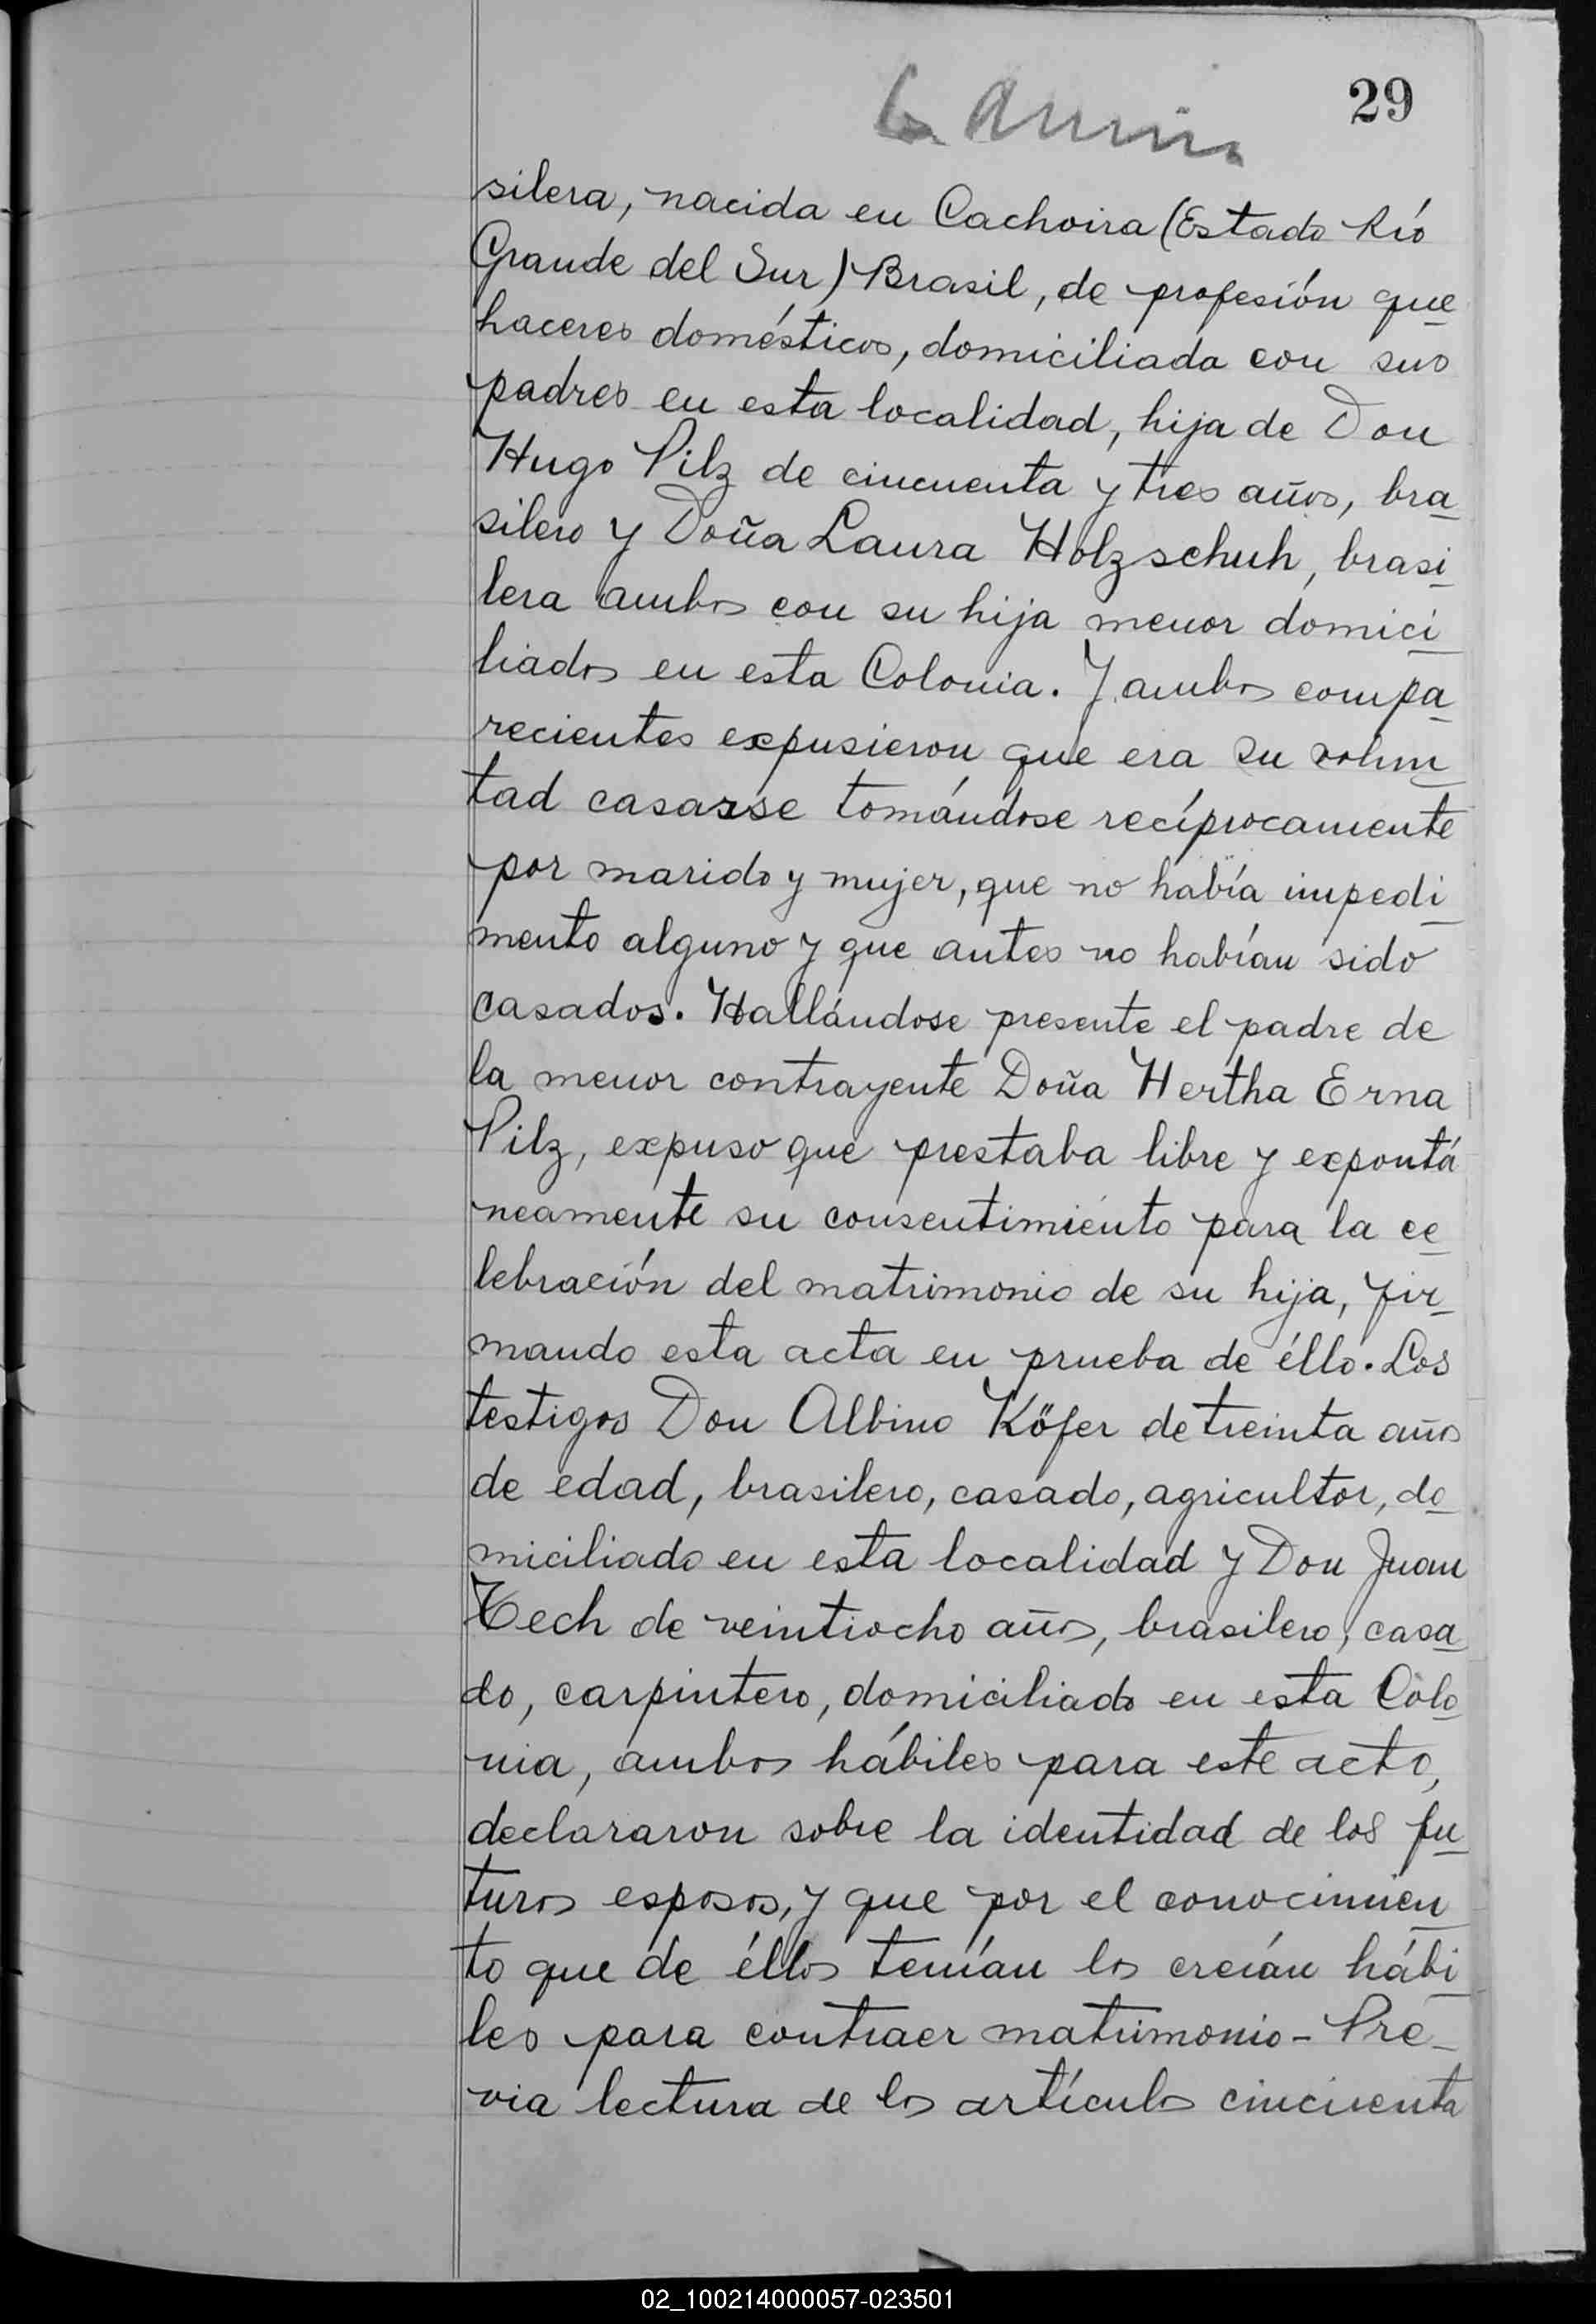 29
silera, nacida en Cachoira (Estado Río
Grande del Sur) Brasil, de profesión que
haceres domésticos, domiciliada con sus
padres en esta localidad, hija de Don
Hugo Pilz de cincuenta y tres años, bra
silero y Doña Laura Holzschuh, brasi
lera ambos con su hija menor domici
liados en esta Colonia. Y ambos compa
recientes expusieron que era su volun
tad casarse tomándose recíprocamente
por marido y mujer, que no había impedi
mento alguno y que antes no habían sido
casados. Hallándose presente el padre de
la menor contrayente Doña Hertha Erna
Pilz, expuso que prestaba libre y expontá
neamente su consentimiento para la ce
lebración del matrimonio de su hija, fir
mando esta acta en prueba de éllo. Los
testigos Don Albino Köfer de treinta años
de edad, brasilero, casado, agricultor, do
miciliado en esta localidad y Don Juan
Tech de veintiocho años, brasilero, casa
do, carpintero, domiciliado en esta Colo
nia, ambos hábiles para este acto,
declararon sobre la identidad de los fu
turos esposos, y que por el conocimien
to que de éllos tenían los creían hábi
les para contraer matrimonio - Pre
via lectura de los artículos cincuenta
02_100214000057-023501